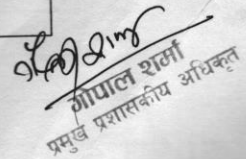 गोपाल शर्मा
प्रमुख प्रशासकीय अधिकृत